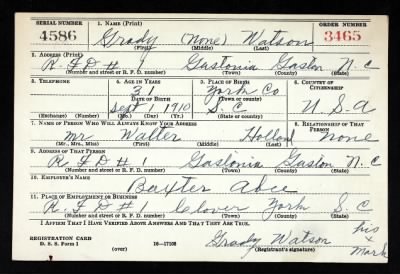 SERIAL NUMBER 1. NAME (Print) ORDER NUMBER
4586 Grady (none) Watson 3465
(First) (Middle) (Last)
2. ADDRESS (Print)
R.F.D # 1 Gastonia Gaston N.C
(Number and street or R. F. D. number) (Town) (County) (State)
3. TELEPHONE 4. AGE IN YEARS 5. PLACE OF BIRTH 6. COUNTRY OF CITIZENSHIP
31 York Co
DATE OF BIRTH (Town or county)
Sept 1 1910 S.C U.S.A
(Exchange) (Number) (Mo.) (Day) (Yr.) (State or country)
7. NAME OF PERSON WHO WILL ALWAYS KNOW YOUR ADDRESS 8. RELATIONSHIP OF THAT PERSON
Mr Walter Holland none
(Mr., Mrs., Miss) (First) (Middle) (Last)
9. ADDRESS OF THAT PERSON
R.F.D # 1 Gastonia Gaston N.C
(Number and street or R. F. D. number) (Town) (County) (State)
10. EMPLOYER'S NAME
Baxter
11. PLACE OF EMPLOYMENT OR BUSINESS
R.F.D # 1 Clover York S.C
(Number and street or R. F. D. number) (Town) (County) (State)
I AFFIRM THAT I HAVE VERIFIED ABOVE ANSWERS AND THAT THEY ARE TRUE.
REGISTRATION CARD
D. S. S. Form 1 16—17108 Grady Watson his x mark
(over) (Registrant's signature)